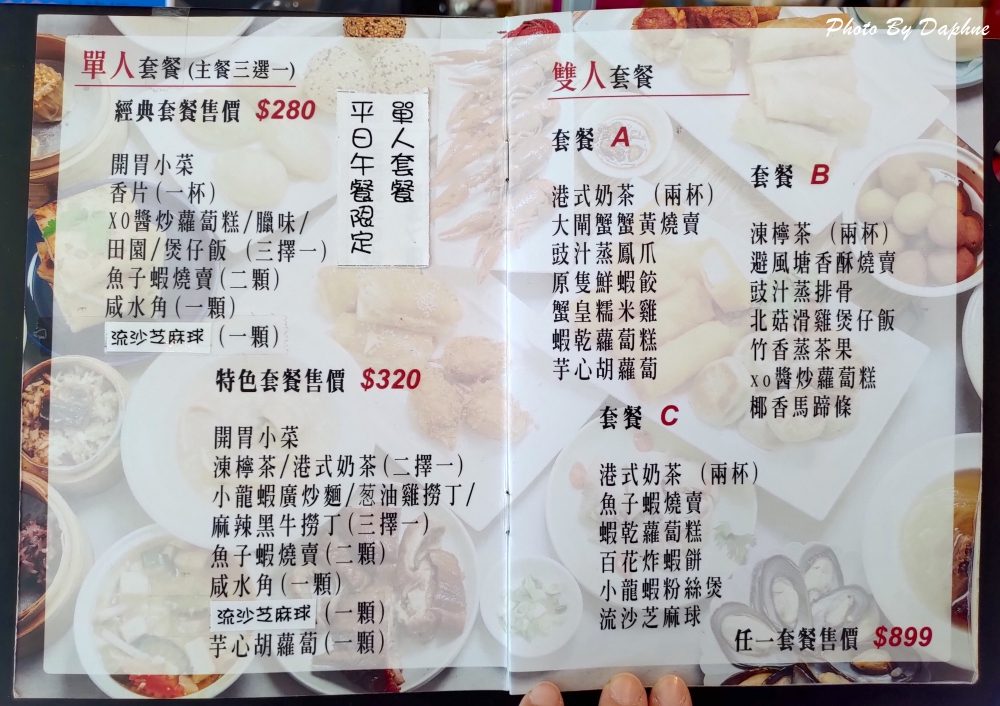 Photo By Daphne
單人套餐 (主餐三選一)
經典套餐售價 $280
單人套餐
平日午餐限定
開胃小菜
香片(一杯)
XO醬炒蘿蔔糕/臘味/
田園/煲仔飯 (三擇一)
魚子蝦燒賣(二顆)
咸水角(一顆)
流沙芝麻球(一顆)
特色套餐售價 $320
開胃小菜
凍檸茶/港式奶茶(二擇一)
小龍蝦廣炒麵/葱油雞撈丁/
麻辣黑牛撈丁(三擇一)
魚子蝦燒賣(二顆)
咸水角(一顆)
流沙芝麻球(一顆)
芋心胡蘿蔔(一顆)
雙人套餐
套餐 A
港式奶茶 (兩杯)
大閘蟹蟹黃燒賣
豉汁蒸鳳爪
原隻鮮蝦餃
蟹皇糯米雞
蝦乾蘿蔔糕
芋心胡蘿蔔
套餐 B
凍檸茶 (兩杯)
避風塘香酥燒賣
豉汁蒸排骨
北菇滑雞煲仔飯
竹香蒸茶果
XO醬炒蘿蔔糕
椰香馬蹄條
套餐 C
港式奶茶 (兩杯)
魚子蝦燒賣
蝦乾蘿蔔糕
百花炸蝦餅
小龍蝦粉絲煲
流沙芝麻球
任一套餐售價 $899